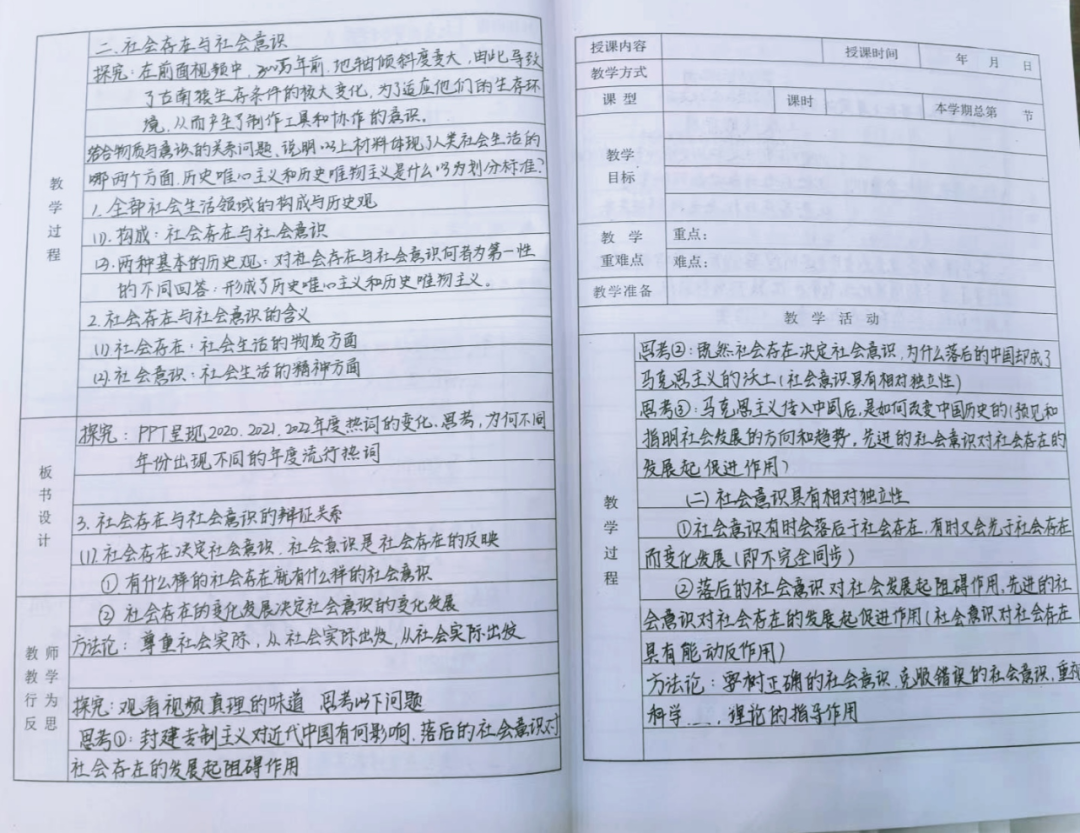 二、社会存在与社会意识
探究：在前面视频中，300万年前，地轴倾斜度变大，由此导致
了古南猿生存条件的极大变化，为了适应他们的生存环
境，从而产生了制作工具和协作的意识。
结合物质与意识的关系问题、说明以上材料体现了人类社会生活的
哪两个方面，历史唯心主义和历史唯物主义是什么以为划分标准？
教学过程
1. 全部社会生活领域的构成与历史观
(1). 构成：社会存在与社会意识
(2). 两种基本的历史观：对社会存在与社会意识何者为第一性
的不同回答，形成了历史唯心主义和历史唯物主义。
2. 社会存在与社会意识的含义
(1) 社会存在：社会生活的物质方面
(2). 社会意识：社会生活的精神方面
探究：PPT呈现2020、2021、2022年度热词的变化、思考，为何不同
年份出现不同的年度流行热词
板书设计
3. 社会存在与社会意识的辩证关系
(1). 社会存在决定社会意识，社会意识是社会存在的反映
① 有什么样的社会存在就有什么样的社会意识
② 社会存在的变化发展决定社会意识的变化发展
方法论：尊重社会实际，从社会实际出发，从社会实际出发
教师教学行为反思
探究：观看视频真理的味道 思考以下问题
思考①：封建专制主义对近代中国有何影响，落后的社会意识对
社会存在的发展起阻碍作用
授课内容 授课时间 年 月 日
教学方式
课 型 课时 本学期总第 节
教学
目标
教 学 重点：
重难点 难点：
教学准备
教 学 活 动
思考②：既然社会存在决定社会意识，为什么落后的中国却成了
马克思主义的沃土(社会意识具有相对独立性)
思考③：马克思主义传入中国后，是如何改变中国历史的(预见和
指明社会发展的方向和趋势，先进的社会意识对社会存在的
发展起促进作用)
教学过程
(二) 社会意识具有相对独立性
①社会意识有时会落后于社会存在，有时又会先于社会存在
而变化发展(即不完全同步)
②落后的社会意识对社会发展起阻碍作用，先进的社
会意识对社会存在的发展起促进作用(社会意识对社会存在
具有能动反作用)
方法论：要树正确的社会意识，克服错误的社会意识，重视
科学……理论的指导作用